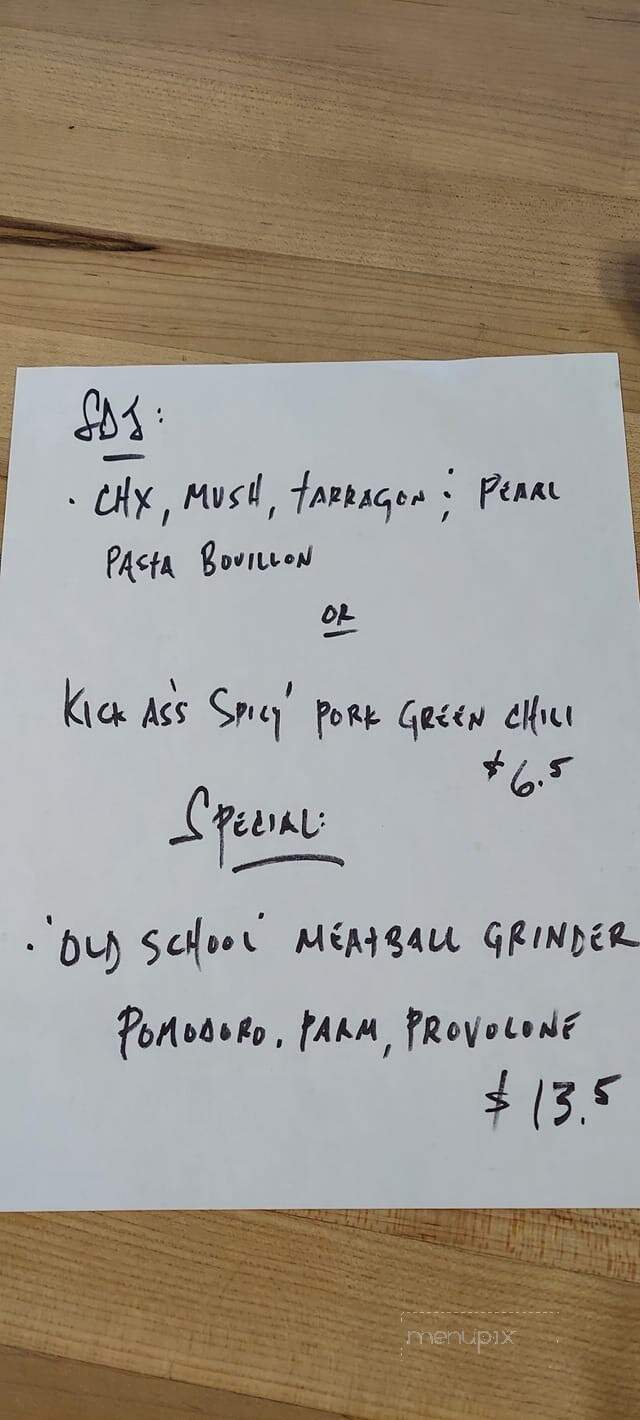 SDJ:
· CHX, MUSH, TARRAGON; PEARL
PASTA BOUILLON
OR
KICK ASS 'SPICY' PORK GREEN CHILI
$6.5
SPECIAL:
· 'OLD SCHOOL' MEATBALL GRINDER
POMODORO. PARM, PROVOLONE
$13.5
menupix